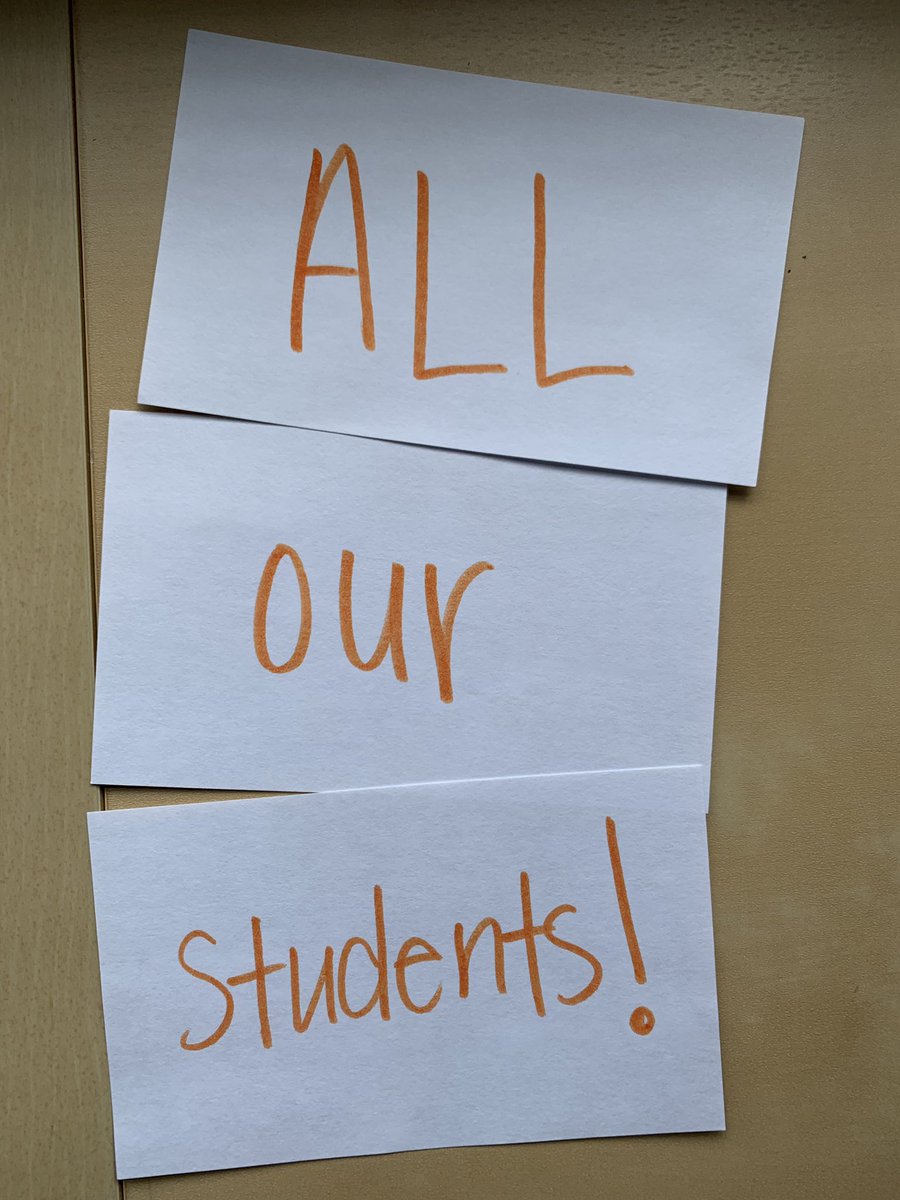 ALL
our
students!